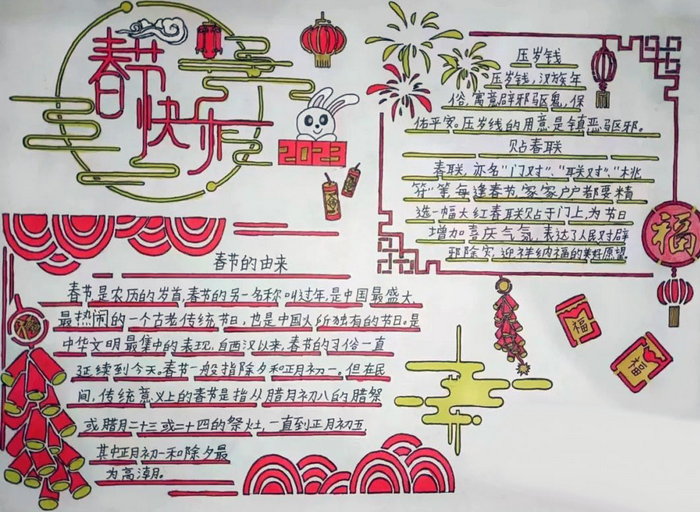 春节
快乐
2023
压岁钱
压岁钱,汉族年
俗,寓意辟邪驱鬼,保
佑平安。压岁钱的用意是镇恶驱邪。
贴春联
春联,亦名"门对"、"联对"、"桃
符"等,每逢春节,家家户户都要精
选一幅大红春联贴于门上,为节日
增加喜庆气氛,表达了人民对辟
邪除灾,迎祥纳福的美好愿望
福
福
福
春节的由来
春节是农历的岁首,春节的另一名称叫过年,是中国最盛大、
最热闹的一个古老传统节日,也是中国人所独有的节日。是
中华文明最集中的表现,自西汉以来,春节的习俗一直
延续到今天,春节一般指除夕和正月初一。但在民
间,传统意义上的春节是指从腊月初八的腊祭
或腊月二十三或二十四的祭灶,一直到正月初五
其中正月初一和除夕最
为高潮。